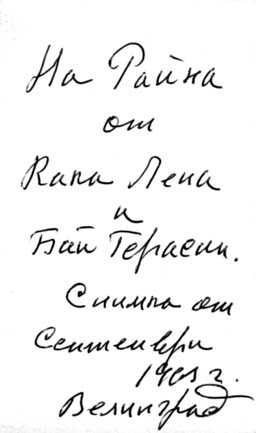 На Райна
от
Кака Лена
и
Бай Герасим.
Снимка от
Септември
г.
Велинград